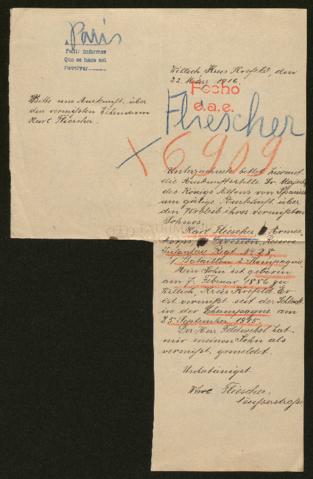 Paris
Pedir informes
Que se hace así
Willich Kreis Krefeld, den
22. März 1916.
Fecho
e.a.e.
Bitte um Auskunft über
den vermißten Ehemann
Karl Fliescher
Fliescher
X6909
Unterzeichnete bittet hiermit
die Auskunftstelle Sr. Majestät
des Königs Alfons von Spanien
um gütige Auskunft über
den Verbleib ihres vermißten
Sohnes.
Karl Fliescher, Armee
Korps Division, Reserve
Infanterie Regt. No 28
1 Bataillon 2 Kompagnie.
Mein Sohn ist geboren
am 7. Februar 1886 zu
Willich, Kreis Krefeld. Er
ist vermißt seit der Schlacht
in der Champagne am
25 September 1915.
Der Herr Feldwebel hat
mir meinen Sohn als
vermißt gemeldet.
Untertänigst
Karl Fliescher